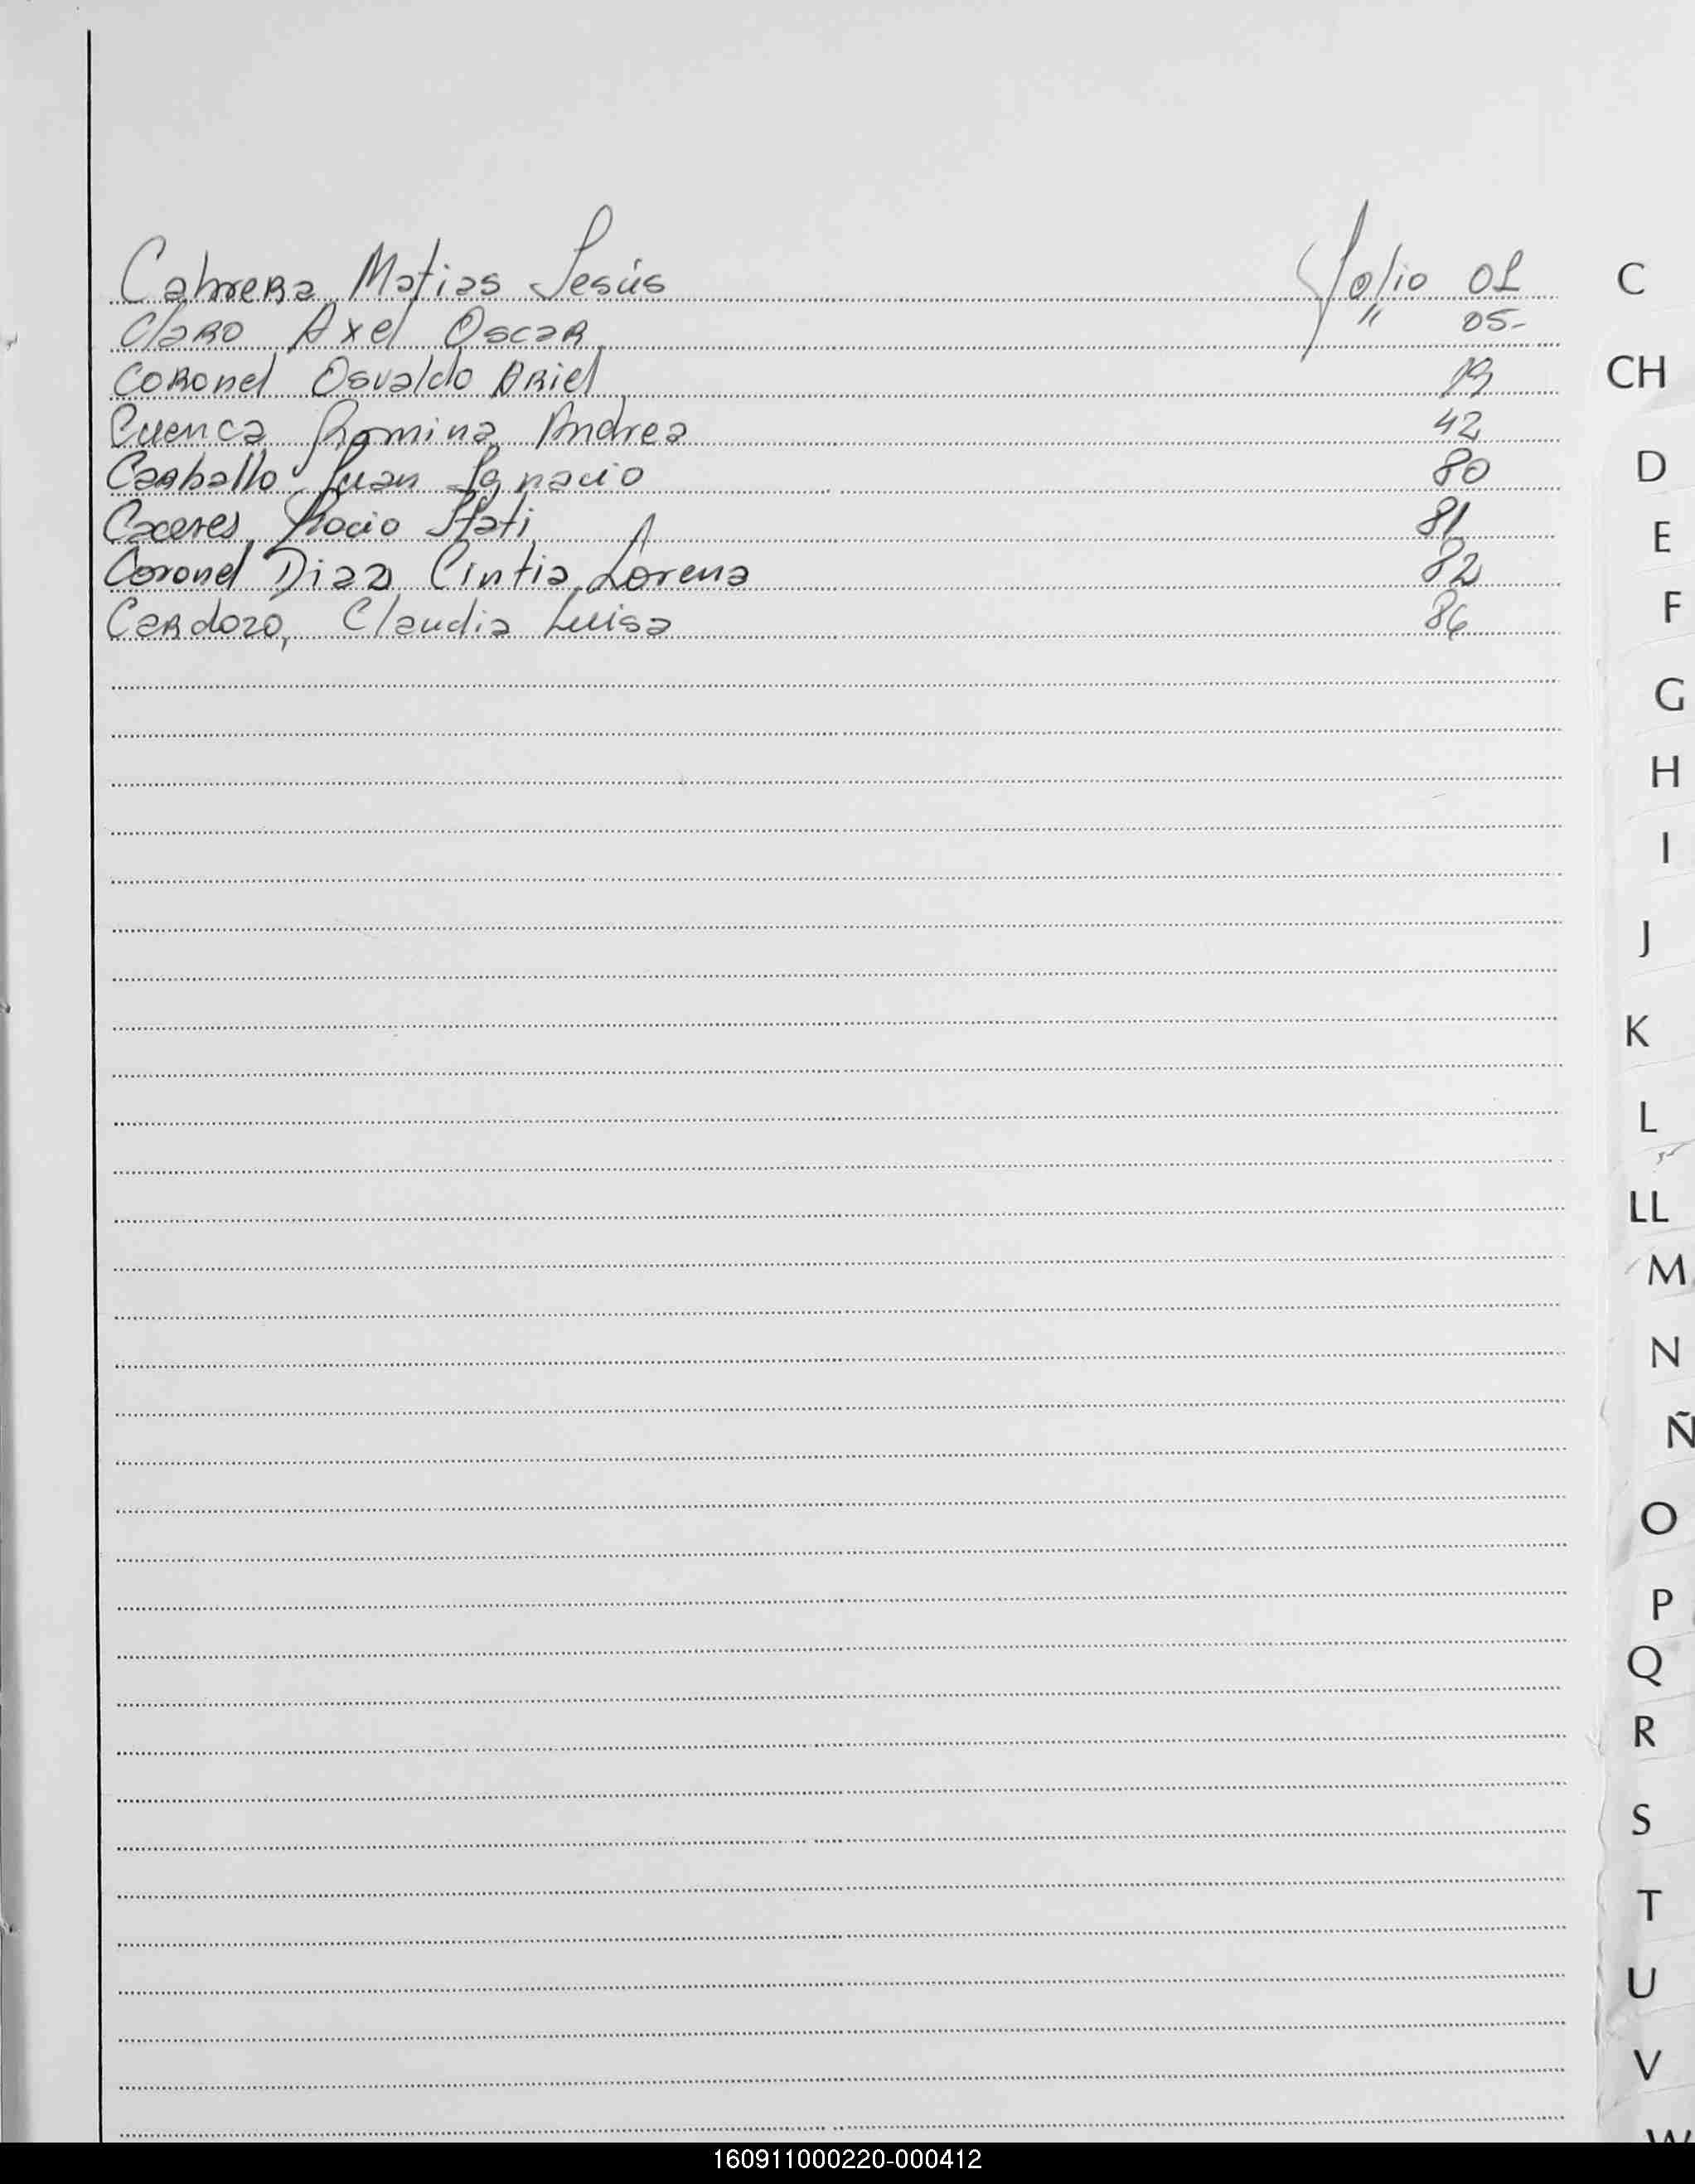 Cabrera Matias Jesús Folio 01 C
Claro Axel Oscar " 05-
Coronel Osvaldo Ariel 19 CH
Cuenca Romina Andrea 42
Carballo Juan Ignacio 80 D
Caceres Rocio 81 E
Coronel Diaz Cintia Lorena 82
Cardozo, Claudia Luisa 86 F
G
H
I
J
K
L
LL
M
N
Ñ
O
P
Q
R
S
T
U
V
W
160911000220-000412